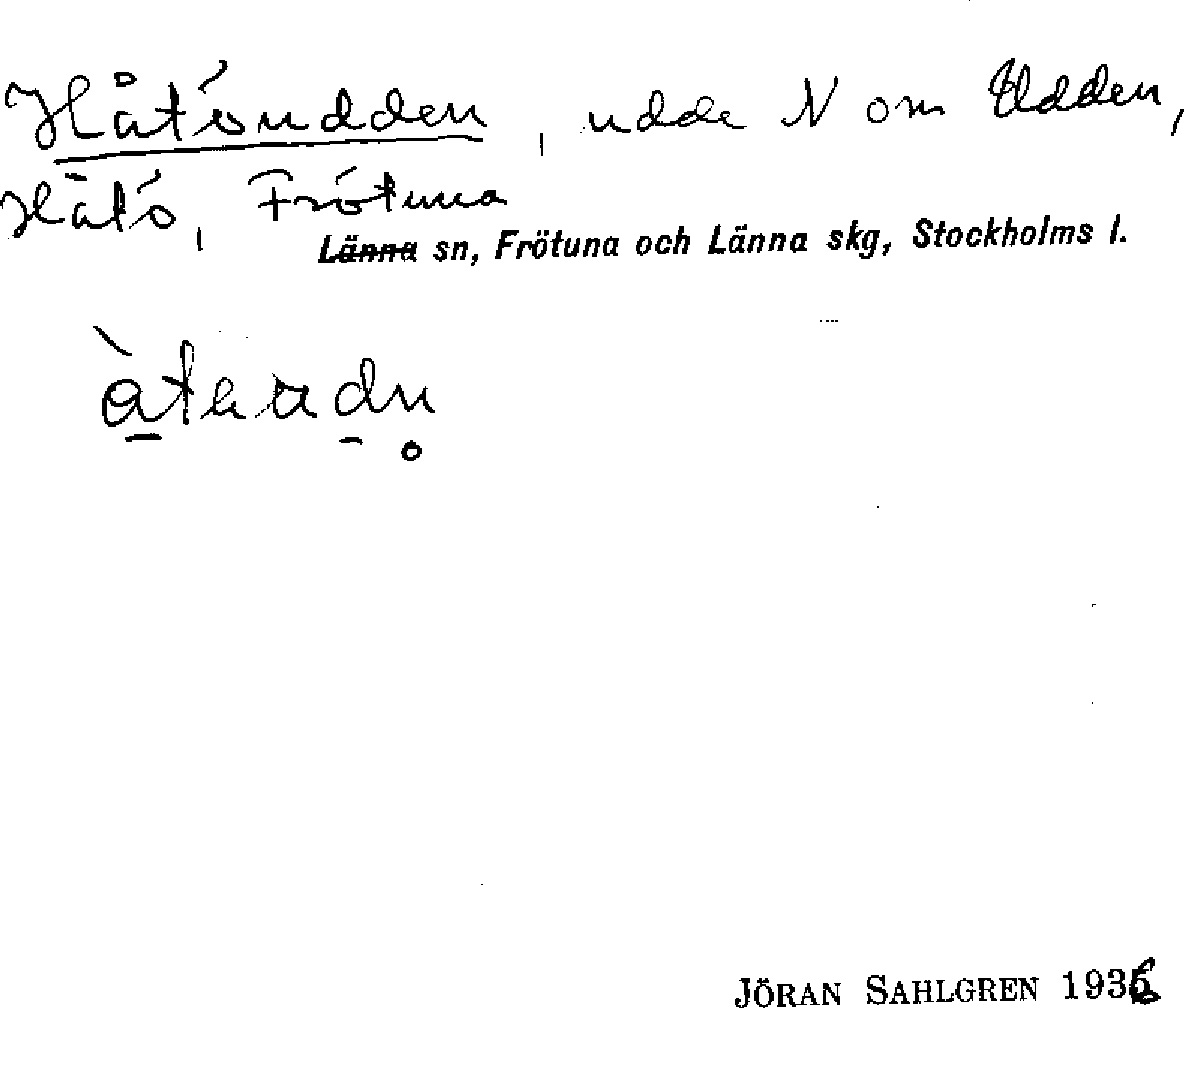 Håtöudden, udde N om Udden,
Håtö, Frötuna
Länna sn, Frötuna och Länna skg, Stockholms l.
JÖRAN SAHLGREN 1936